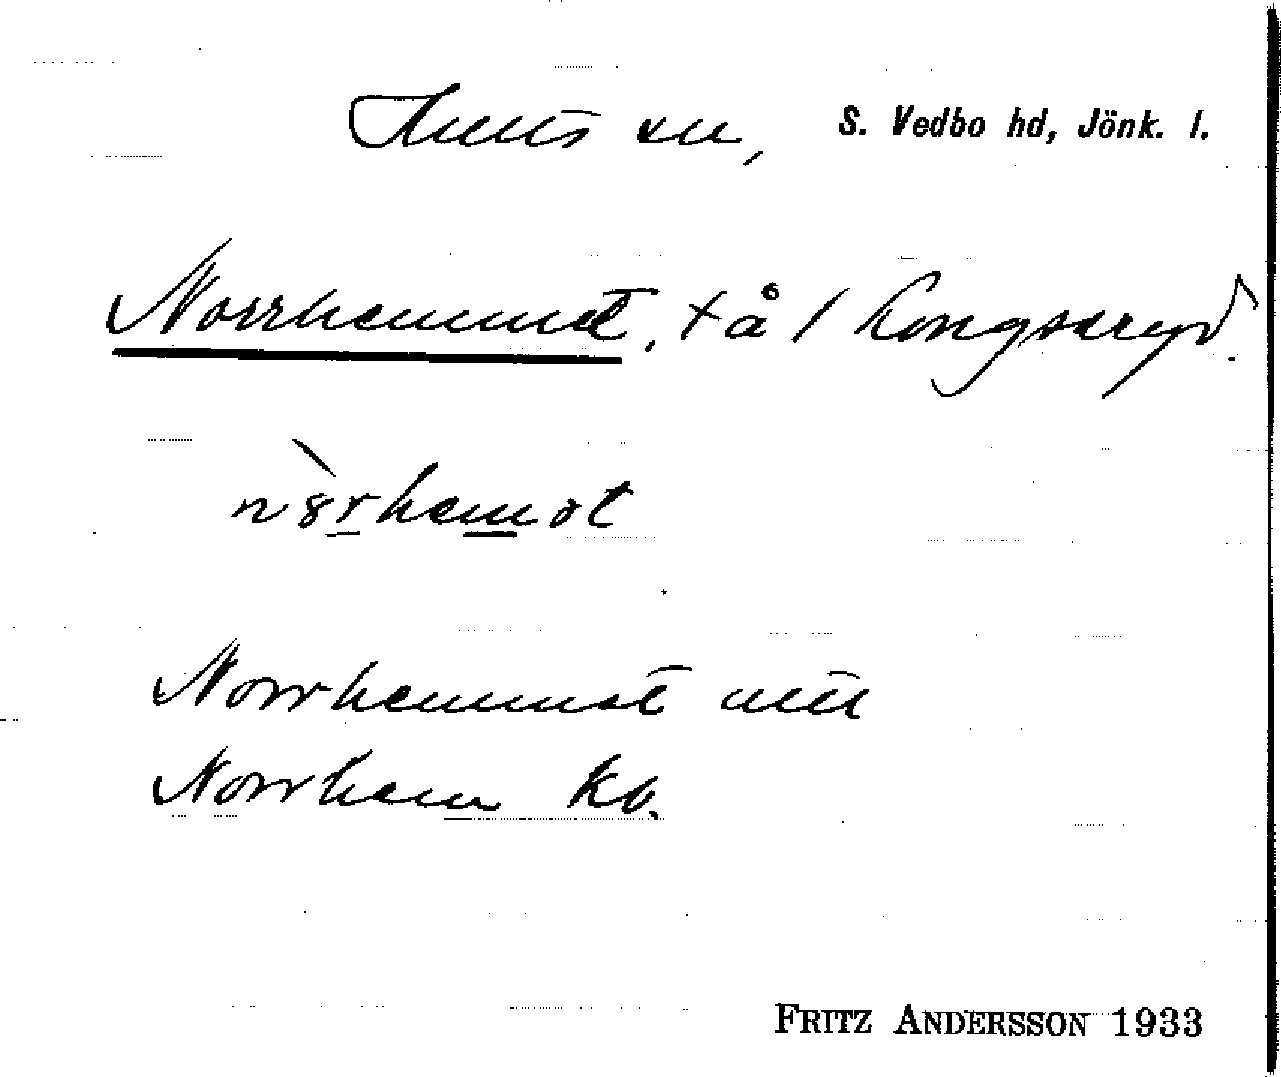 Hults sn, S. Vedbo hd, Jönk. l.
Norrhemmet, tå / Kongseryd.
nòrhemət
Norrhemmet
Norrhem kb.
FRITZ ANDERSSON 1933